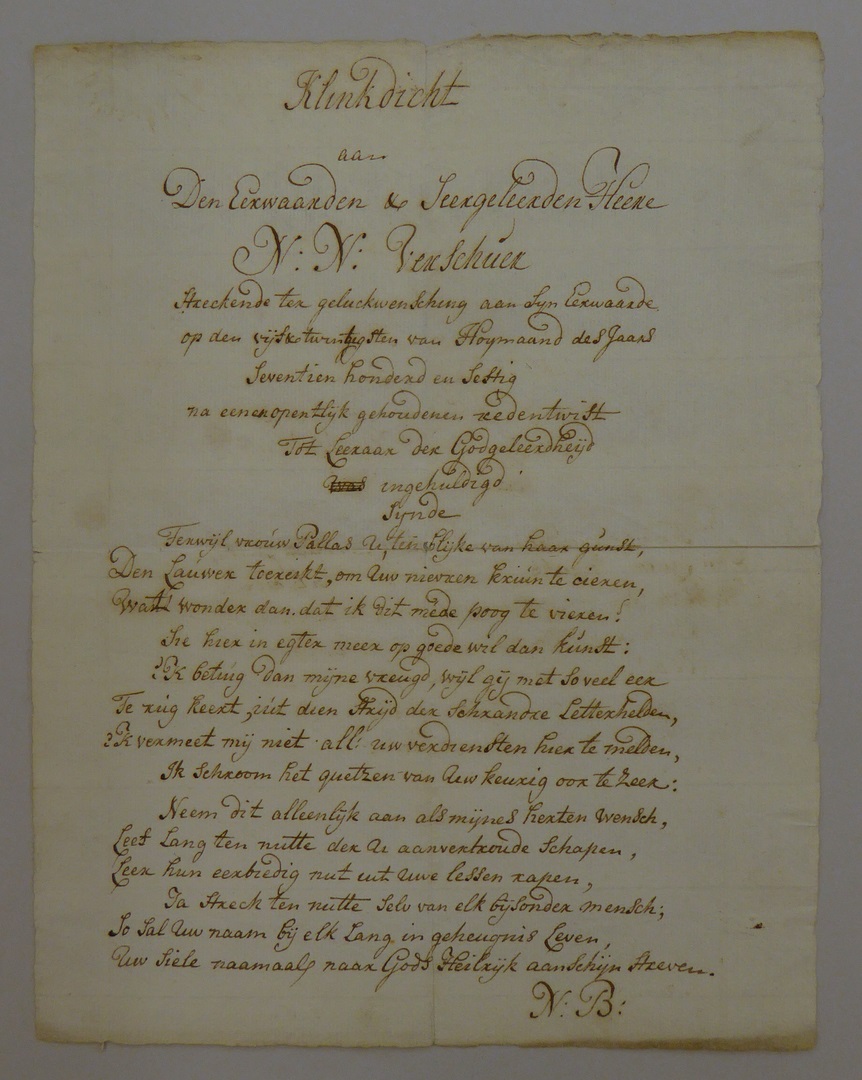 Klinkdicht
aan
Den Eerwaarden & Seergeleerden Heere
N: N: Verschuer
Streckende ter geluckwensching aan Syn Eerwaarde
op den vijfketwintigsten van Hoymaand des Jaars
Seventien honderd en Sestig
na eenen opentlyk gehoudenen redentwist
Tot Leeraar der Godgeleerdheijd
Was ingehuldigd
Synde
Terwyl vrouw Pallas U, ten blijke van haar gunst,
Den Lauwer toereikt, om Uw nievren kruin te cieren,
Wat! wonder dan. dat ik dit mede poog te vieren!
Sie hier in egter meer op goede wil dan kunst:
'K betuig dan mijne vreugd, wijl gij met so veel eer
Te rug keert, uit dien Stryd der Schrandre Letterhelden,
'K vermeet mij niet all: uw verdiensten hier te melden,
Ik Schroom het quetzen van Uw keurig oor te Zeer:
Neem dit alleenlyk aan als mijnes herten wensch,
Leef Lang ten nutte der U aanvertroude Schapen,
Leer hun eerbiedig nut uit Uwe lessen rapen,
Ja Streck ten nutte Selv van elk bijsonder mensch;
So Sal Uw naam bij elk Lang in geheugnis Leven,
Uw Siele naamaals naar Gods Heilrijk aanschijn Streven.
N: B: